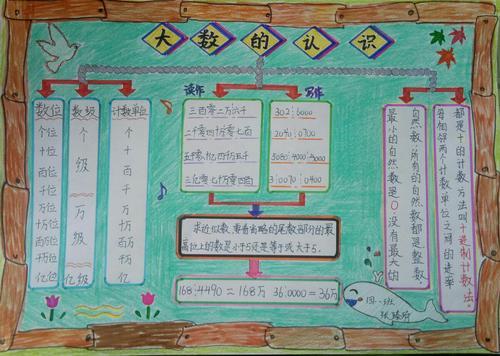 大数的认识
数位
个位
十位
百位
千位
万位
十万位
百万位
千万位
亿位
数级
个
级
万
级
亿级
计数单位
个
十
百
千
万
十万
百万
千万
亿
读作
三百零二万六千
三亿零七十万零四百
写作
302¦6000
3¦0070¦0400
求近似数,要看省略的尾数部分的最
高位上的数是小于5还是等于或大于5.
168¦4490≈168万 36¦0000=36万
每相邻两个计数单位之间的进率
都是十的计数方法叫十进制计数法。
最小的自然数是0没有最大的
自然数,所有的自然数都是整数。